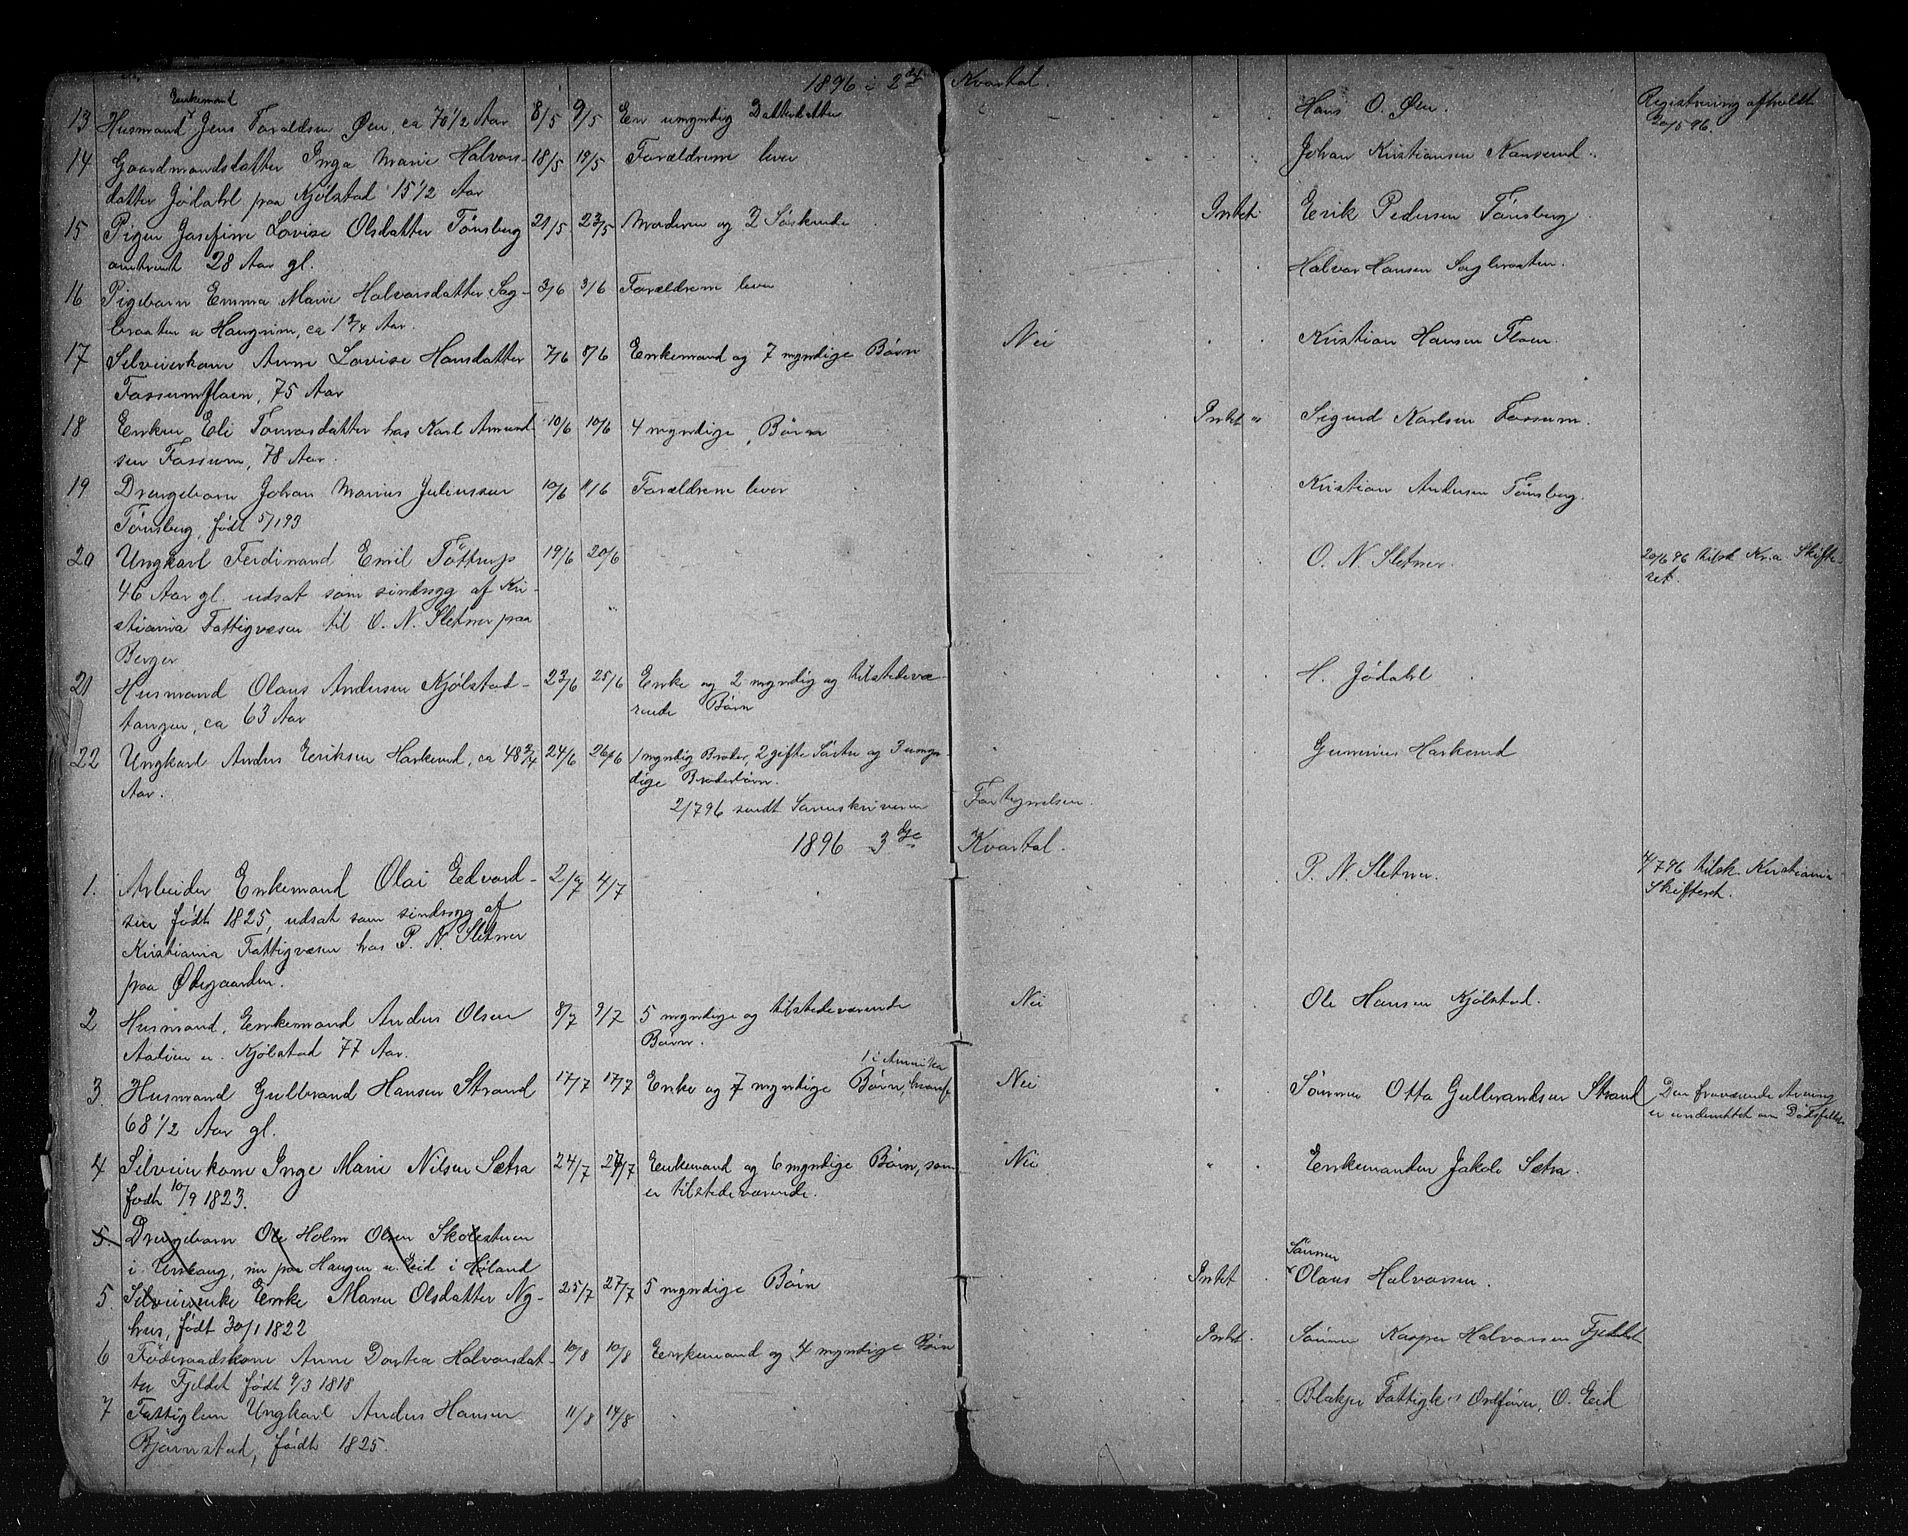 1896 i 2det Kvartal.
Enkemand
13 Husmand Jens Taraldsen Øen, ca 70 1/2 Aar 8/5 9/5 En umyndig Datterdatter Hans O. Øen. Registrering afholdt
20/5 96.
14 Gaardmandsdatter Inga Marie Halvors- 18/5 19/5 Forældrene lever Johan Kristiansen
datter Jødahl paa Kjølstad 15 1/2 Aar
15 Pigen Josefine Lovise Olsdatter Tønsberg 21/5 23/5 Moderen og 2 Søskende Intet Erik Pedersen Tønsberg
omtrent 28 Aar gl.
16 Pigebarn Emma Marie Halvorsdatter Sag- 3/6 3/6 Forældrene lever Halvor Hansen Sagbraaten.
braaten u Haugrim, ca 1 3/4 Aar.
17 Selveierkone Anne Lovise Hansdatter 7/6 8/6 Enkemand og 7 myndige Børn Nei Kristian Hansen Floen.
Fossumfloen, 75 Aar
18 Enken Eli Torvasdatter hos Karl Amund 10/6 10/6 4 myndige Børn Intet " Sigurd Karlsen Fossum.
sen Fossum, 78 Aar.
19 Drengebarn Johan Marius Juliussen 10/6 11/6 Forældrene lever Kristian Andersen Tønsberg.
Tønsberg, født 5/1 93
20 Ungkarl Ferdinand Emil Tøttrup 19/6 20/6 O. N. Sletner. 20/6 96 tilsk Kr.a Skifte-
ret.
46 Aar gl. udsat som sindssyg af Kri-
stiania Fattigvæsen til O. N. Sletner paa
Berger
21 Husmand Olaus Andersen Kjølstad- 23/6 25/6 Enke og 2 myndig og tilstedevæ- H. Jødahl
tangen, ca 63 Aar rende Børn
22 Ungkarl Anders Eriksen Harkerud, ca 48 3/4 24/6 26/6 1 myndig Broder, 2 gifte Søstre og 3 umyn- Gunerius Harkerud
Aar. dige Broderbørn.
2/7 96 sendt Sorenskriveren Fortegnelsen.
1896 3die Kvartal.
1. Arbeider Enkemand Olai Edvard- 2/7 4/7 P. N. Sletner. 4/7 96 tilsk. Kristiania
Skifteret.
sen født 1825, udsat som sindssyg af
Kristiania Fattigvæsen hos P. N. Sletner
paa Ødegaarden.
2 Husmand, Enkemand Anders Olsen 8/7 9/7 5 myndige og tilstedeværende Nei Ole Hansen Kjølstad.
u. Kjølstad 77 Aar. Børn.
1 i Amerika
3. Husmand Gulbrand Hansen Strand 17/7 17/7 Enke og 7 myndige Børn, hvoraf Nei Sønnen Otto Gulbrandsen Strand Den fraværende Arving
er underrettet om Dødsfaldet.
68 1/2 Aar gl.
4 Selveierkone Inge Marie Nilsen Sætra 24/7 27/7 Enkemand og 6 myndige Børn, som Nei " Enkemanden Jakob Sætra.
født 10/9 1823. er tilstedeværende.
5. Drengebarn Ole Holm Olsen Skolestuen
i Urskoug, nu paa Haugen u. Eid i Høland
5. Selveierenke Enke Maren Olsdatter Ny- 25/7 27/7 5 myndige Børn Intet Sønnen Olaus Halvorsen.
hus, født 30/1 1822
6 Føderaadskone Anne Dortea Halvorsdat- 10/8 10/8 Enkemand og 4 myndige Børn Intet. Sønnen Kasper Halvorsen Fjeldet
ter Fjeldet født 9/3 1818
7 Fattiglem Ungkarl Anders Hansen 11/8 14/8 Blakjer Fattigk's Ordfører, O. Eid
Bjørnstad, født 1825.